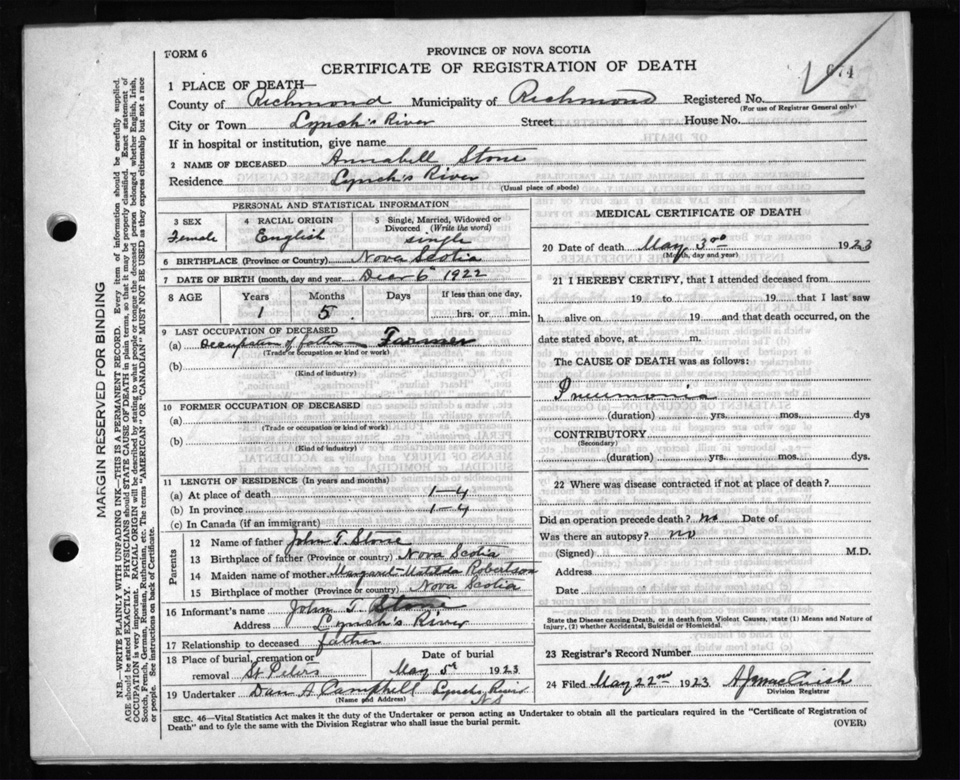 FORM 6
PROVINCE OF NOVA SCOTIA
CERTIFICATE OF REGISTRATION OF DEATH
674
1 PLACE OF DEATH—
County of Richmond Municipality of Richmond Registered No.
(For use of Registrar General only)
City or Town Lynch's River Street House No.
If in hospital or institution, give name
2 NAME OF DECEASED Annabell Stone
Residence Lynch's River
(Usual place of abode)
PERSONAL AND STATISTICAL INFORMATION
3 SEX Female
4 RACIAL ORIGIN English
5 Single, Married, Widowed or Divorced (Write the word) single
6 BIRTHPLACE (Province or Country) Nova Scotia
7 DATE OF BIRTH (month, day and year) 6th 1922
8 AGE Years Months Days If less than one day,
1 5 hrs. or min.
9 LAST OCCUPATION OF DECEASED
(a) Occupation of father — Farmer
(Trade or occupation or kind or work)
(b)
(Kind of industry)
10 FORMER OCCUPATION OF DECEASED
(a)
(Trade or occupation or kind or work)
(b)
(Kind of industry)
11 LENGTH OF RESIDENCE (In years and months)
(a) At place of death 1-4
(b) In province 1-4
(c) In Canada (if an immigrant)
Parents
12 Name of father John T. Stone
13 Birthplace of father (Province or country) Nova Scotia
14 Maiden name of mother Margaret Matilda Robertson
15 Birthplace of mother (Province or country) Nova Scotia
16 Informant's name John T. Stone
Address Lynch's River
17 Relationship to deceased father
18 Place of burial, cremation or removal St Peters Date of burial May 5th 1923
19 Undertaker Dan A Campbell Lynch's River
(Name and Address) NS
MEDICAL CERTIFICATE OF DEATH
20 Date of death May 3rd 1923
(Month, day and year)
21 I HEREBY CERTIFY, that I attended deceased from
19 to 19 that I last saw
h alive on 19 and that death occurred, on the
date stated above, at m.
The CAUSE OF DEATH was as follows:
Pneumonia
(duration) yrs. mos. dys
CONTRIBUTORY
(Secondary)
(duration) yrs. mos. dys.
22 Where was disease contracted if not at place of death?
Did an operation precede death? no Date of
Was there an autopsy? no
(Signed) M.D.
Address
Date
State the Disease Causing Death, or in death from Violent Causes, state (1) Means and Nature of
Injury, (2) whether Accidental, Suicidal or Homicidal.
23 Registrar's Record Number
24 Filed May 22nd 1923 A J MacCuish
Division Registrar
SEC. 46—Vital Statistics Act makes it the duty of the Undertaker or person acting as Undertaker to obtain all the particulars required in the "Certificate of Registration of
Death" and to fyle the same with the Division Registrar who shall issue the burial permit.
(OVER)
MARGIN RESERVED FOR BINDING
N.B.—WRITE PLAINLY WITH UNFADING INK—THIS IS A PERMANENT RECORD. Every item of information should be carefully supplied.
AGE should be stated EXACTLY. PHYSICIANS should STATE CAUSE OF DEATH in plain terms, so that it may be properly classified. Exact statement of
OCCUPATION is very important. RACIAL ORIGIN will be described by stating to what people or tongue the deceased person belonged whether English, Irish,
Scotch, French, German, Russian, Ruthenian, etc. The terms "AMERICAN" OR "CANADIAN" MUST NOT BE USED as they express citizenship but not a race
or people. See instructions on back of Certificate.